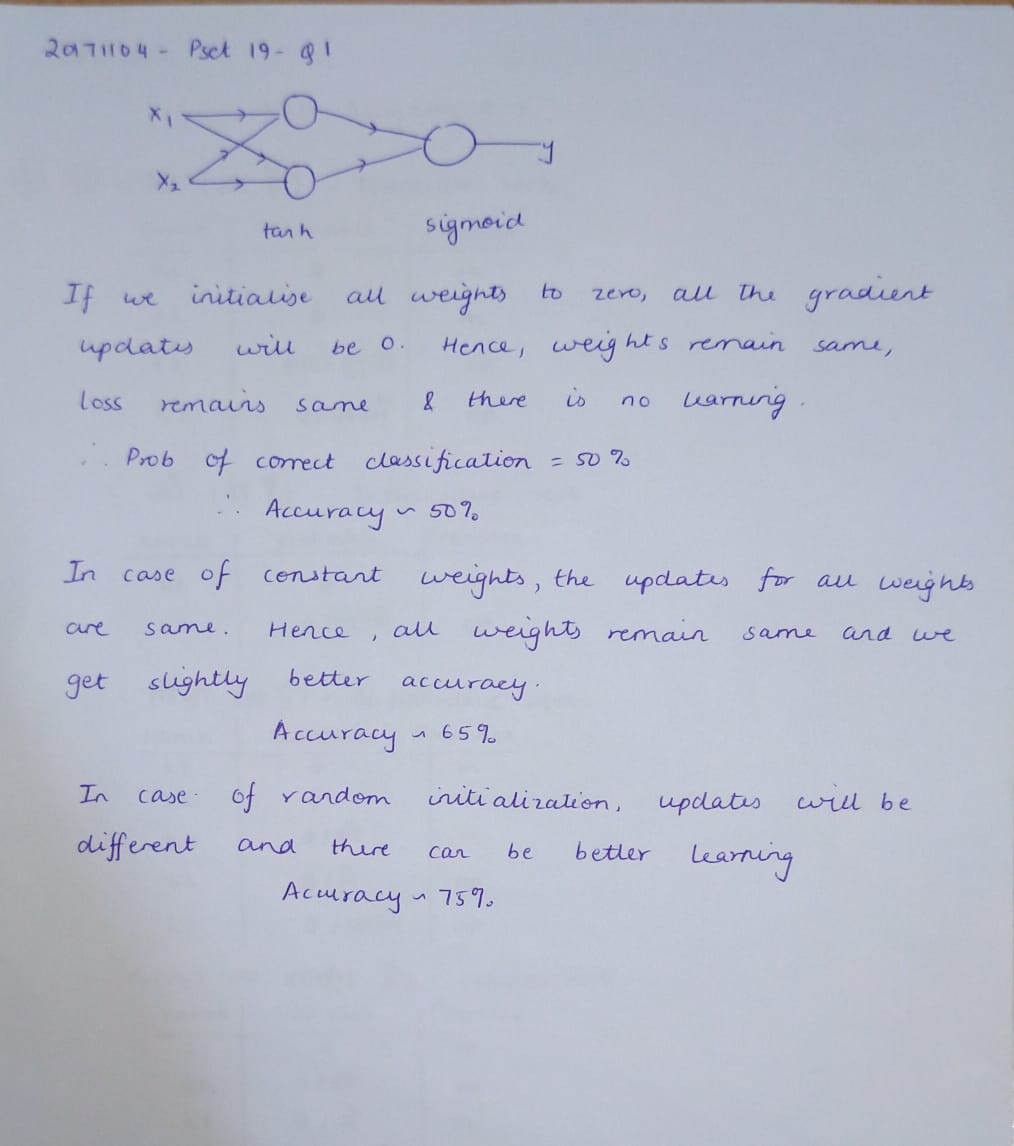 20171104 - Pset 19 - Q1
x₁
x₂
y
tanh sigmoid
If we initialise all weights to zero, all the gradient
updates will be 0. Hence, weights remain same,
loss remains same & there is no learning.
∴ Prob of correct classification = 50 %
∴ Accuracy ~ 50%
In case of constant weights, the updates for all weights
are same. Hence, all weights remain same and we
get slightly better accuracy.
Accuracy ~ 65%
In case of random initialization, updates will be
different and there can be better learning
Accuracy ~ 75%